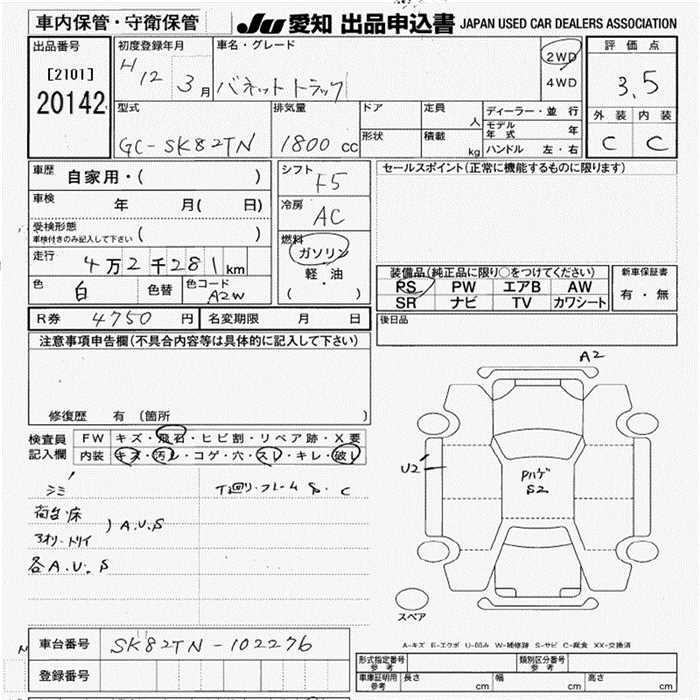 車内保管・守衛保管 JU 愛知 出品申込書 JAPAN USED CAR DEALERS ASSOCIATION
出品番号
[2101]
20142
初度登録年月
H12 3月
車名・グレード
バネットトラック
2WD
4WD
評価点
3.5
外装 内装
C C
型式
GC-SK82TN
排気量
1800cc
ドア
形状
定員
人
積載
kg
ディーラー・並行
モデル年式 年
ハンドル 左・右
車歴 自家用・( )
車検 年 月( 日)
受検形態
車検付きのみ記入して下さい ( )
走行 4万2千281km
色 白 色替 色コード A2W
シフト F5
冷房 AC
燃料
ガソリン
軽・油
( )
セールスポイント(正常に機能するものに限ります)
装備品(純正品に限り○をつけてください)
PS PW エアB AW
SR ナビ TV カワシート
新車保証書
有・無
後日品
R券 4750円 名変期限 月 日
注意事項申告欄(不具合内容等は具体的に記入して下さい)
修復歴 有 (箇所 )
検査員
記入欄
FW キズ・飛石・ヒビ割・リペア跡・X要
内装 キズ・汚レ・コゲ・穴・スレ・キレ・破レ
シミ
下廻リ・フレーム S.C
荷台・床
アオリ・トリイ
) A.U.S
各A.U.S
A2
U2
Pハゲ
S2
スペア
A-キズ E-エクボ U-凹み W-補修跡 S-サビ C-腐食 XX-交換済
車台番号 SK82TN-102276
登録番号
形式指定番号
参考
類別区分番号
参考
車庫証明用
参考
長さ cm 幅 cm 高さ cm